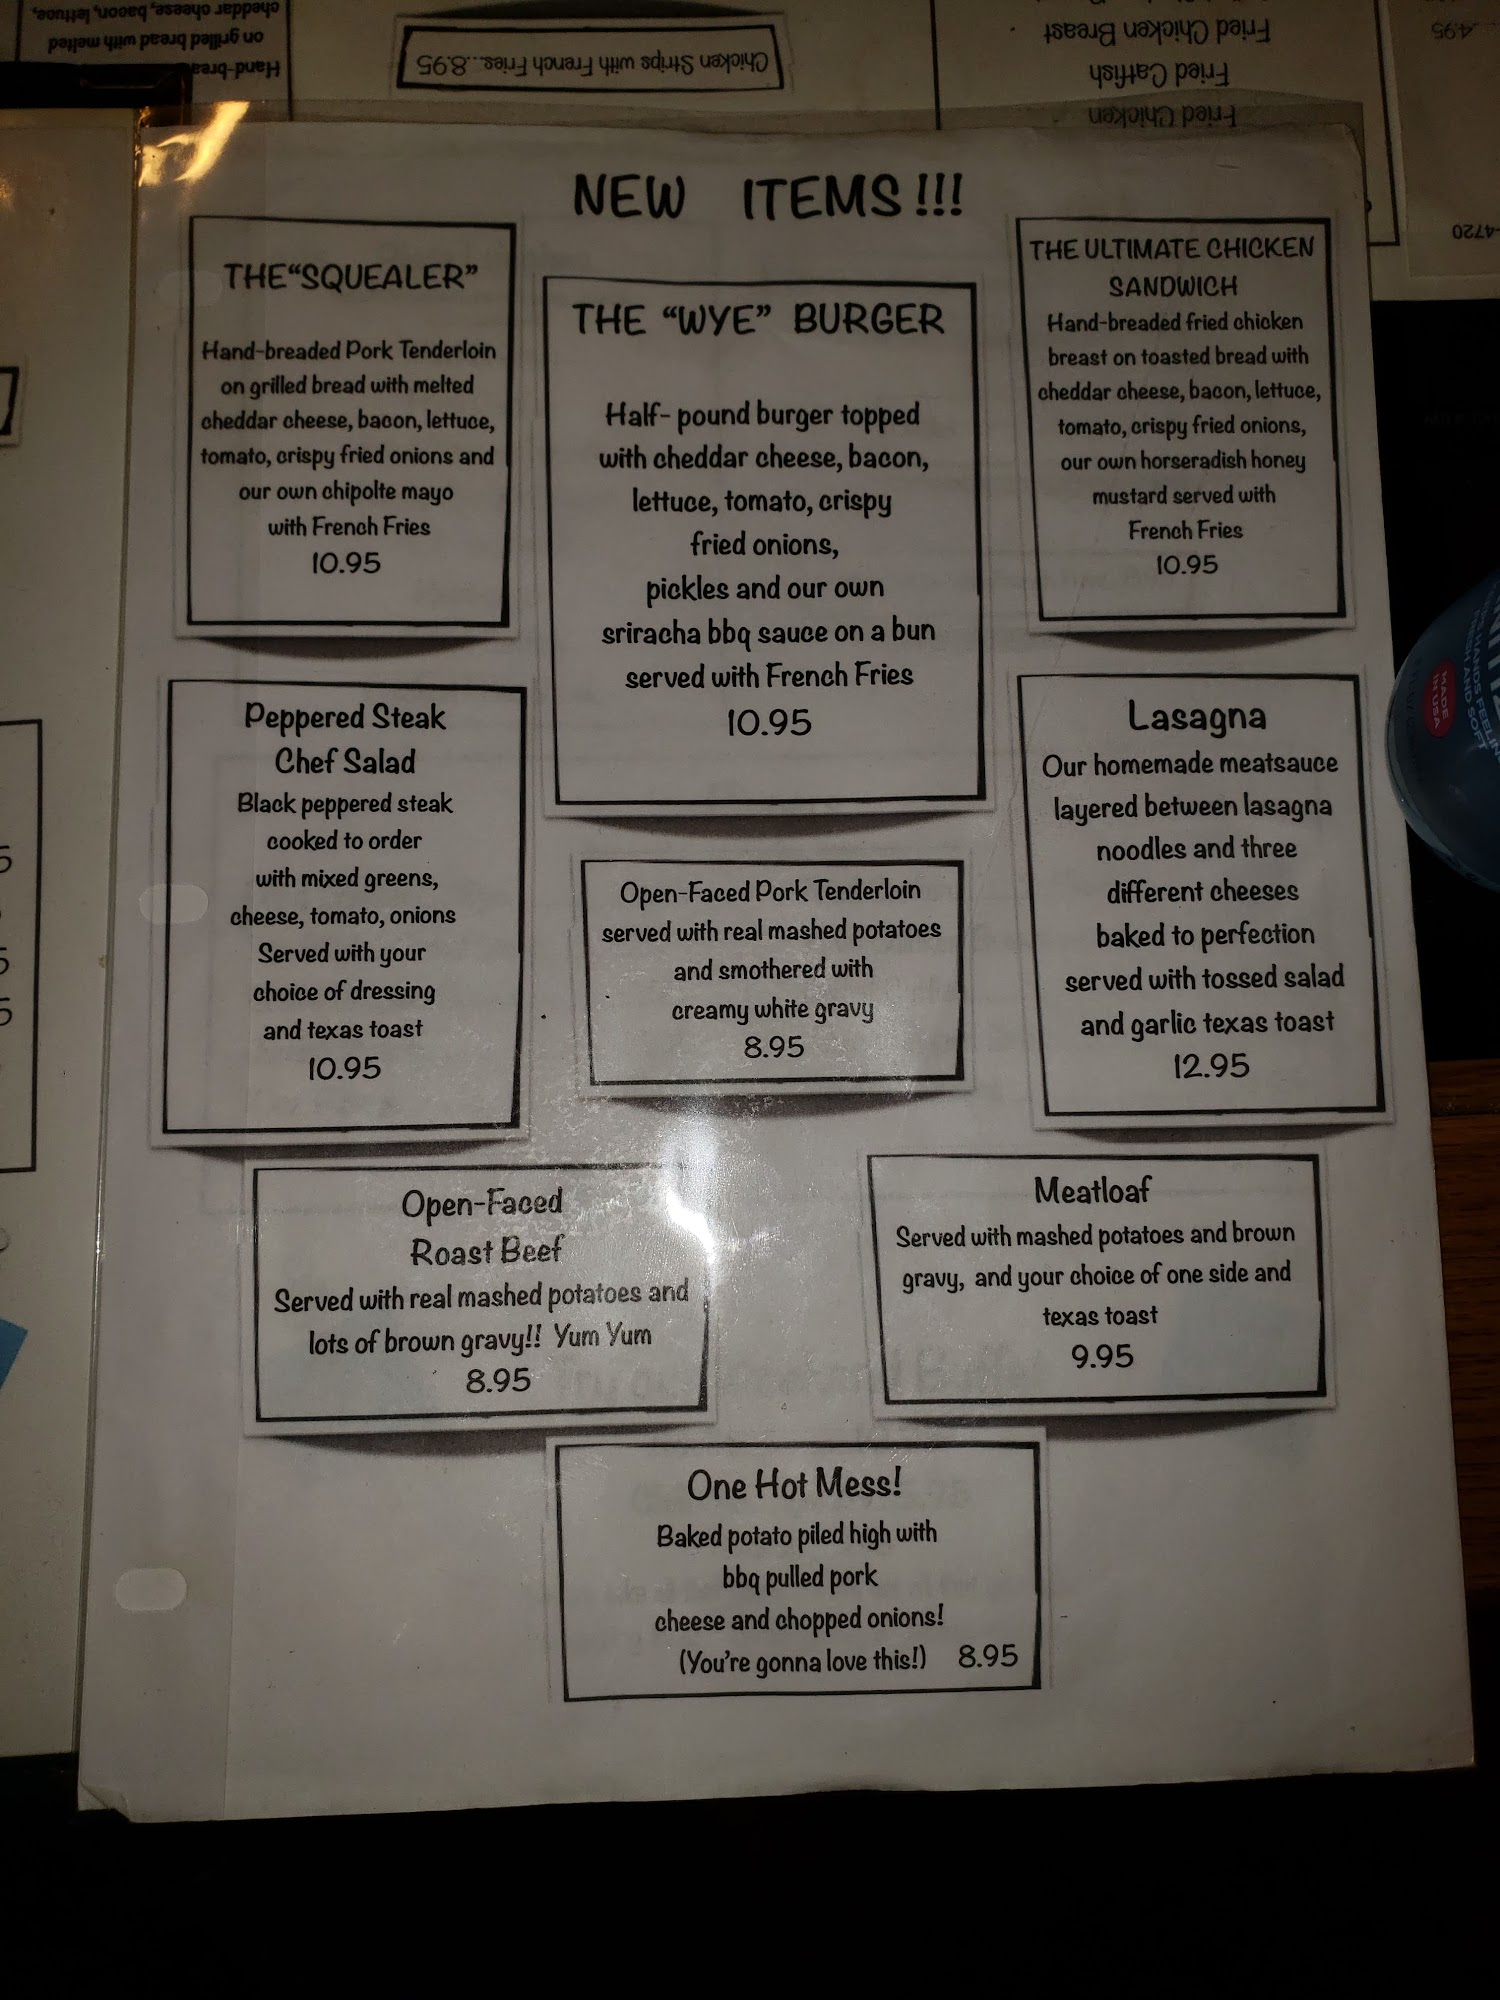 cheddar cheese, bacon, lettuce,
on grilled bread with melted
Chicken Strips with French Fries...8.95
Fried Chicken Breast
Fried Catfish
Fried Chicken
4.95
-4720
NEW ITEMS!!!
THE“SQUEALER”
Hand-breaded Pork Tenderloin
on grilled bread with melted
cheddar cheese, bacon, lettuce,
tomato, crispy fried onions and
our own chipolte mayo
with French Fries
10.95
THE “WYE” BURGER
Half- pound burger topped
with cheddar cheese, bacon,
lettuce, tomato, crispy
fried onions,
pickles and our own
sriracha bbq sauce on a bun
served with French Fries
10.95
THE ULTIMATE CHICKEN
SANDWICH
Hand-breaded fried chicken
breast on toasted bread with
cheddar cheese, bacon, lettuce,
tomato, crispy fried onions,
our own horseradish honey
mustard served with
French Fries
10.95
Peppered Steak
Chef Salad
Black peppered steak
cooked to order
with mixed greens,
cheese, tomato, onions
Served with your
choice of dressing
and texas toast
10.95
Open-Faced Pork Tenderloin
served with real mashed potatoes
and smothered with
creamy white gravy
8.95
Lasagna
Our homemade meatsauce
layered between lasagna
noodles and three
different cheeses
baked to perfection
served with tossed salad
and garlic texas toast
12.95
Open-Faced
Roast Beef
Served with real mashed potatoes and
lots of brown gravy!! Yum Yum
8.95
Meatloaf
Served with mashed potatoes and brown
gravy, and your choice of one side and
texas toast
9.95
One Hot Mess!
Baked potato piled high with
bbq pulled pork
cheese and chopped onions!
(You're gonna love this!) 8.95
MADE
IN USA
HANDS FEELIN
AND SOFT